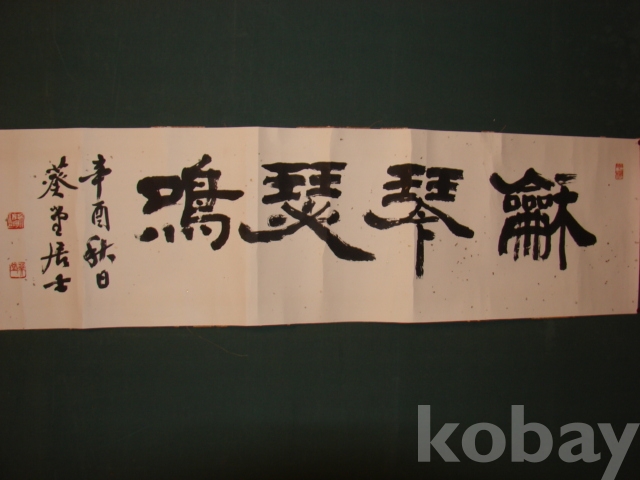 龢琴瑟鳴
辛酉秋日
葵堂居士
kobay